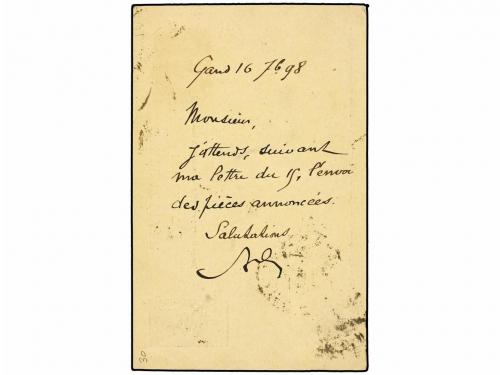 Gand 16 7b 98
Monsieur,
j'attends, suivant
ma lettre du 15, l'envoi
des pièces annoncées.
Salutations
30